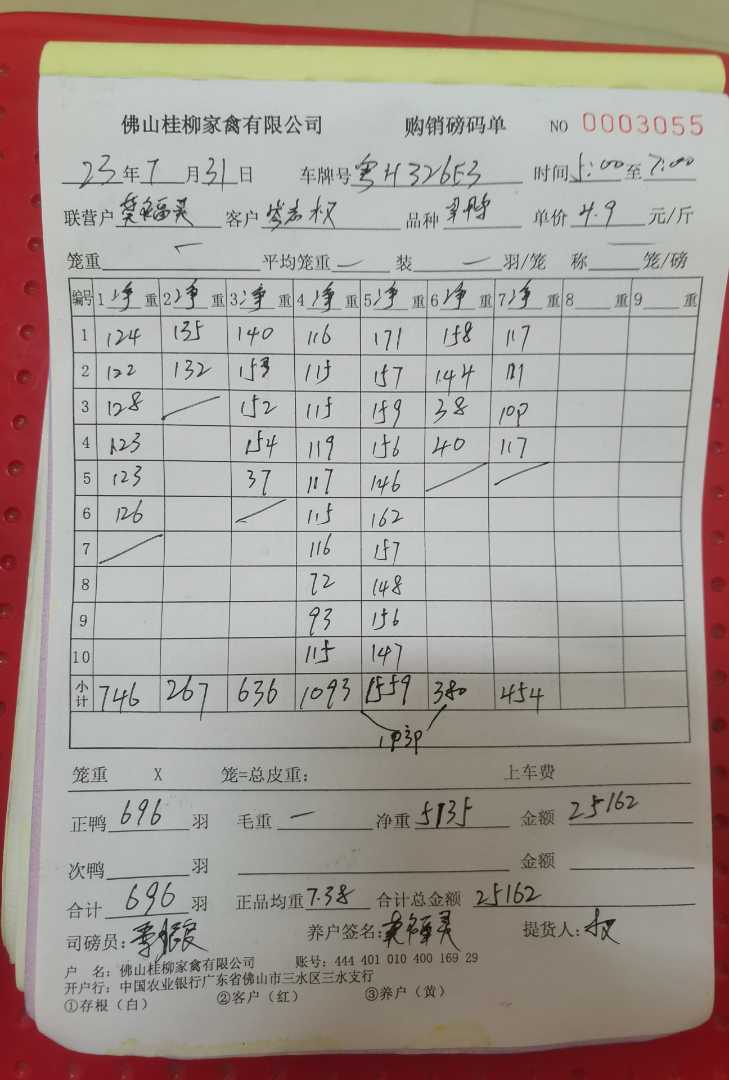 佛山桂柳家禽有限公司 购销磅码单 NO 0003055
23年7月31日 车牌号粤H326E3 时间5:00至7:00
联营户 客户 品种 单价4.9元/斤
笼重一 平均笼重一 装一羽/笼 称 笼/磅
编号 1净重 2净重 3净重 4净重 5净重 6净重 7净重 8重 9重
1 124 135 140 116 171 158 117
2 122 132 153 115 157 144 111
3 128 152 115 159 38 109
4 123 154 119 156 40 117
5 123 37 117 146
6 126 115 162
7 116 157
8 72 148
9 93 156
10 115 147
小计 746 267 636 1093 1559 380 454
笼重 X 笼=总皮重: 上车费
正鸭696羽 毛重一 净重5135 金额25162
次鸭 羽 金额
合计696羽 正品均重7.38 合计总金额25162
司磅员: 养户签名: 提货人:权
户 名:佛山桂柳家禽有限公司 账号:444 401 010 400 169 29
开户行:中国农业银行广东省佛山市三水区三水支行
①存根(白) ②客户(红) ③养户(黄)